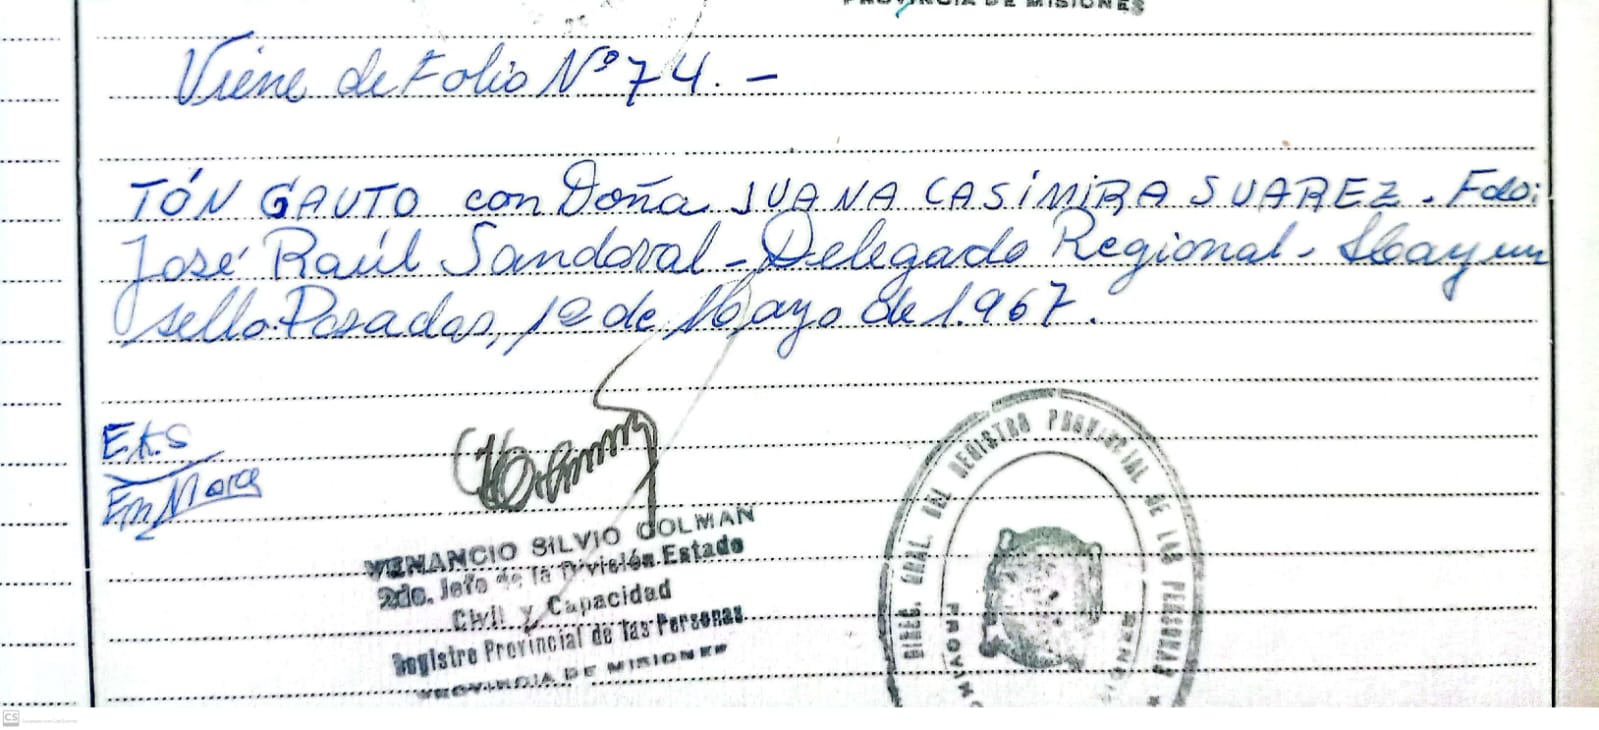 PROVINCIA DE MISIONES
Viene de Folio Nº 74. -
TÓN GAUTO con Doña JUANA CASIMIRA SUAREZ. Fdo:
José Raúl Sandoval - Delegado Regional - Hay un
sello. Posadas, 12 de Mayo de 1.967.
E.A.S.
VENANCIO SILVIO COLMAN
2do. Jefe de la División Estado
Civil y Capacidad
Registro Provincial de las Personas
PROVINCIA DE MISIONES
DIREC. GRAL. DEL REGISTRO PROVINCIAL DE LAS PERSONAS
CS